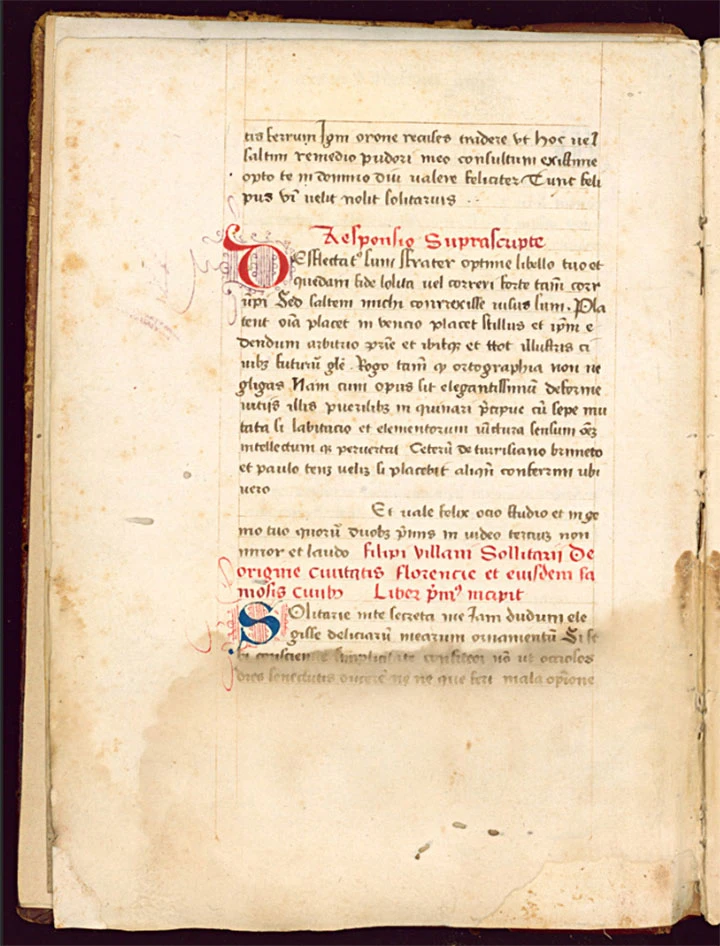 tis ferrum Igni orone recuses tradere vt hoc uel
saltim remedio pudori meo consultum existime
opto te in domino diu ualere feliciter Tunc feli
pus vt̄ uelit nolit solitarius
Responsio Suprascripte
DEfflectat᷒ sum ffrater optime libello tuo et
quedam fide solita uel correxi forte tam̄ corr
upi Sed saltem michi correxisse uisus sum. Pla
cent oīa placet inuencio placet stillus et ip̄m e
dendum arbitror pr̄ie et ibitqꝫ et ttot illustris ci
uibꝫ futurū gle᷒. Rogo tam̄ qꝫ ortographia non ne
gligas Nam cum opus sit elegantissimū deforme
uitijs illis puerilibꝫ inquinari p̄cipue cū sepe mu
tata si labitacio et elementorum iūctura sensum oēꝫ
intellectum qꝫ peruertat Ceterū de turrisiano bruneto
et paulo tenꝫ uelis si placebit aliqn̄ conferrimi ubi
uero
Et uale felix ocio studio et inge
nio tuo quorū duobꝫ p̄mis in video tercius non
minor et laudo filipi villani Sollitarij De
origine ciuitatis florencie et eiusdem fa
mosis ciuibꝫ Liber pm᷒ incipit
SOlitarie inte secreta me Iam dudum ele
gisse deliciarū mearum ornamentū Si se
bi conscien simplicitate confiteor nō ut occioles
dies senectutis ne que feri mala opinione